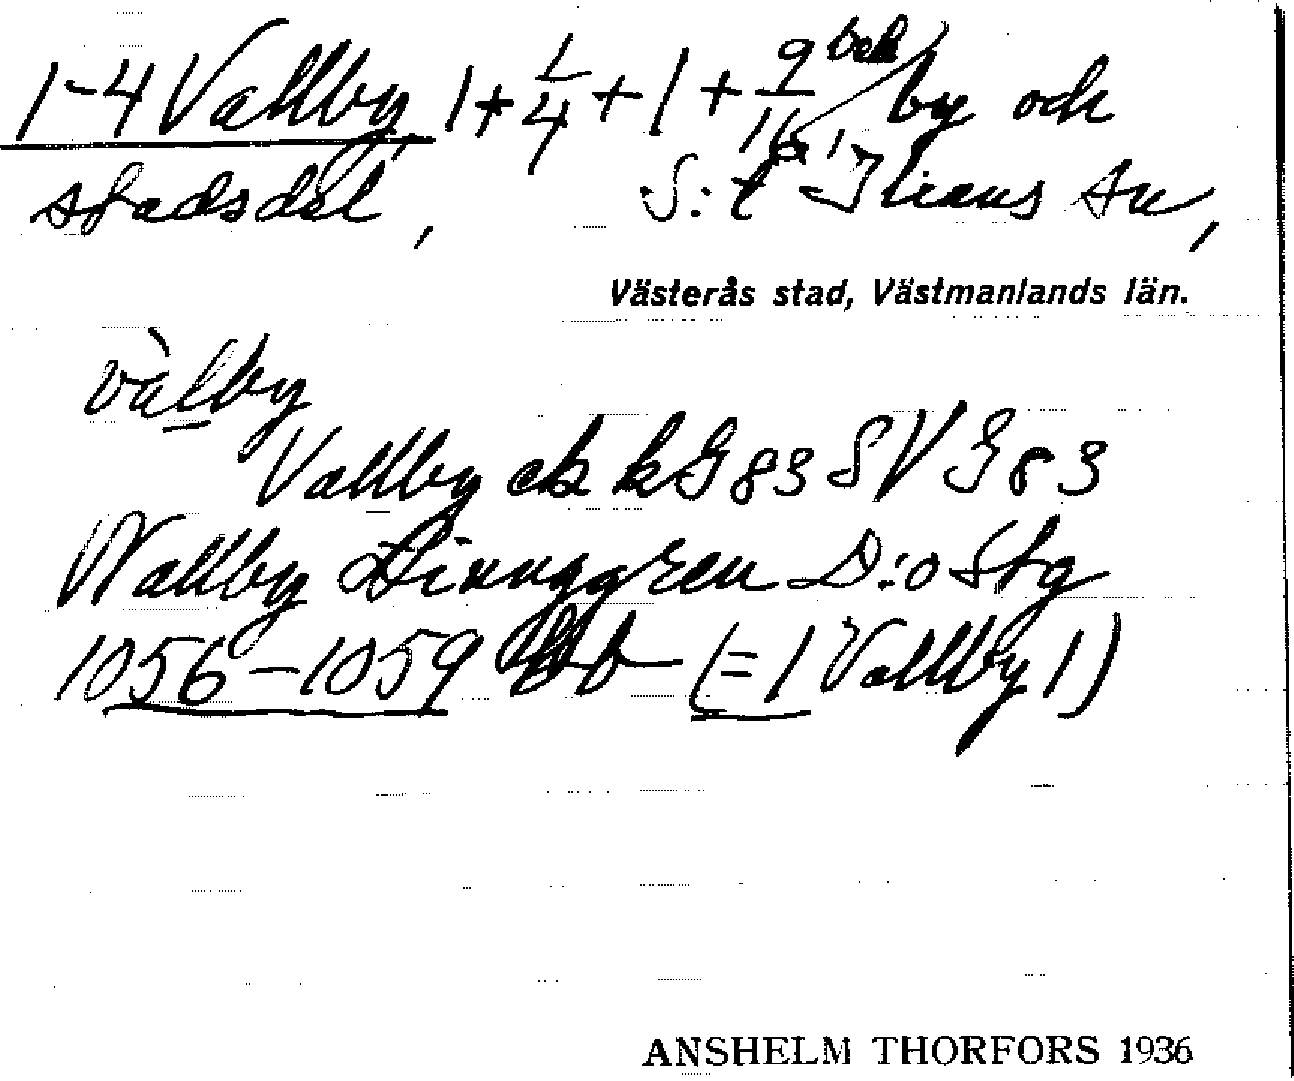 1-4 Vallby, 1+1/4+1+9/16 by och
stadsdel, S:t Ilians sn,
Västerås stad, Västmanlands län.
vàlby
Vallby ek kG83 SVG83
Wallby Linnggren D:o Stg
1056-1059 (=1 Vallby 1)
ANSHELM THORFORS 1936